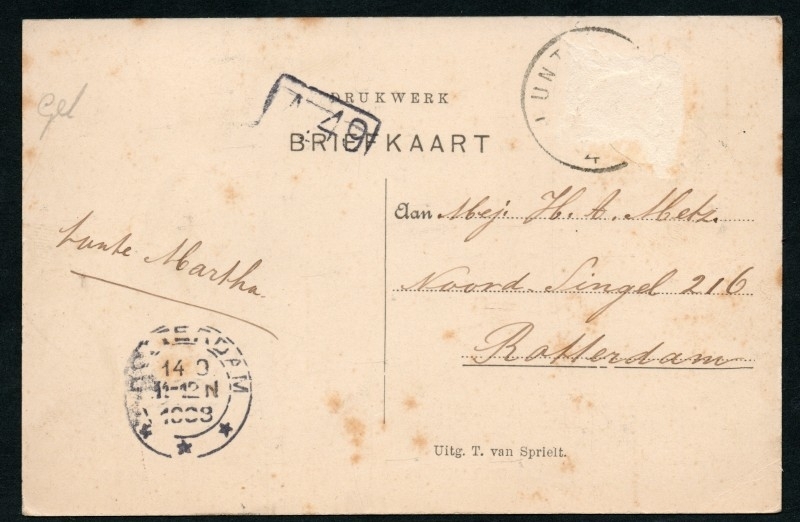 gel
DRUKWERK
BRIEFKAART
49
UNT
4
Aan Mej. H. A. Metz.
Noord-Singel 216
Rotterdam
tante Martha
14
11-12 N
Uitg. T. van Sprielt.